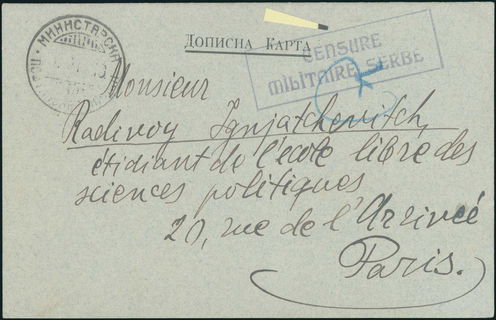 МИНИСТАРСКА
ДОПИСНА КАРТА
CENSURE
MILITAIRE SERBE
Monsieur
Radivoy Ignjatchevitch,
étidiant de l'école libre des
sciences politiques
20, rue de l'Arrivée
Paris.